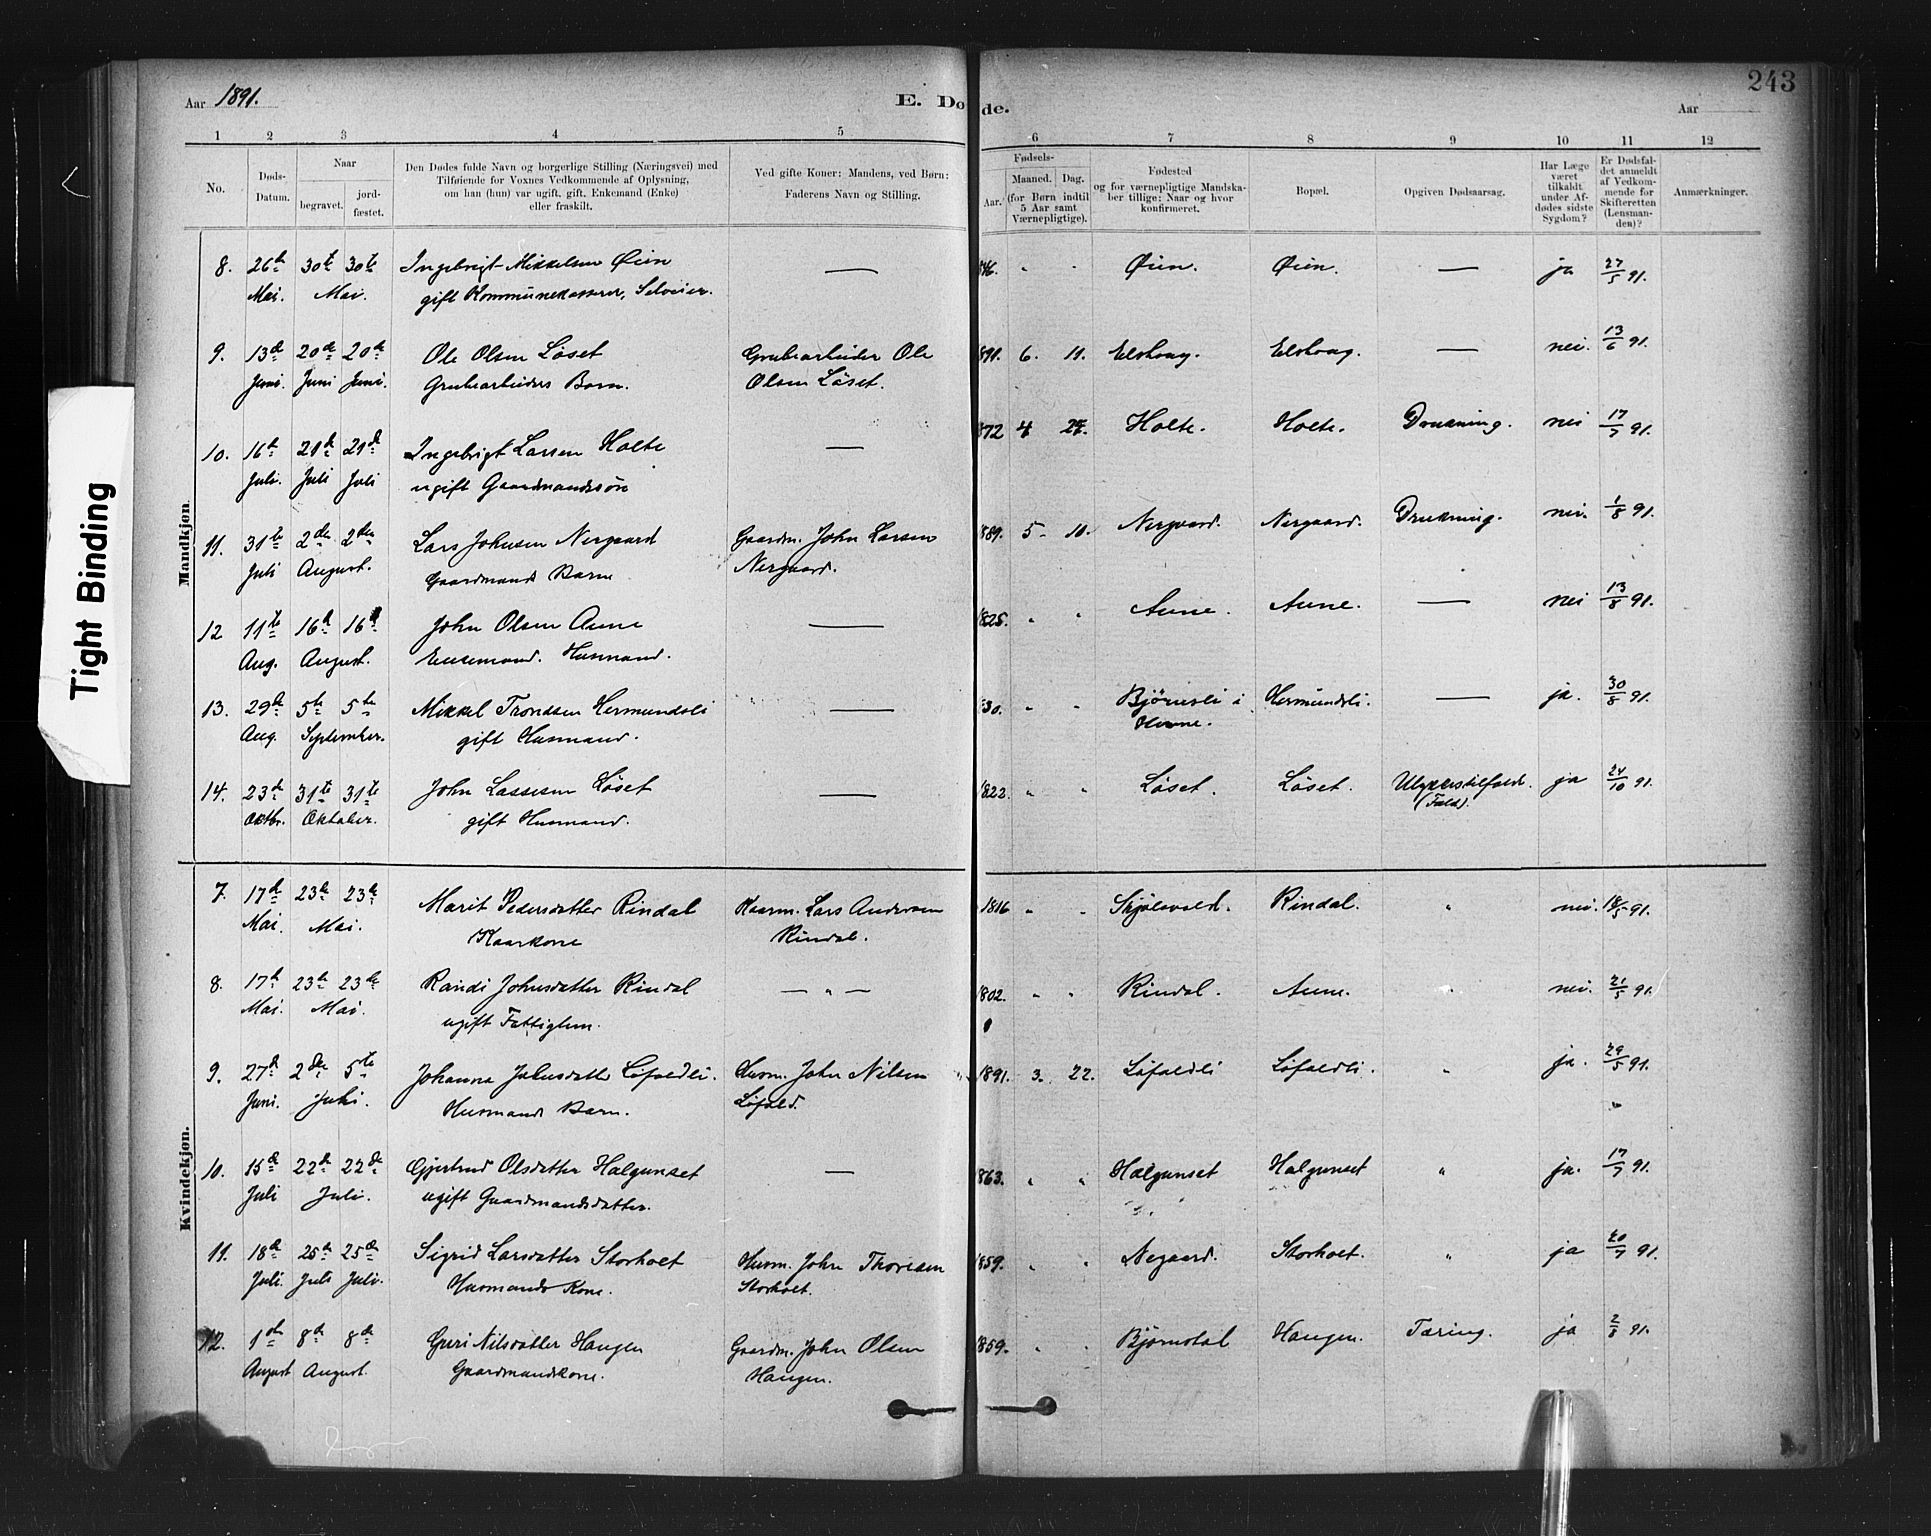 Aar 1891.
E. Døde.
Aar
243
1 2 3 4 5 6 7 8 9 10 11 12
No.
Døds-Datum.
Naar
begravet.
jord-fæstet.
Den Dødes fulde Navn og borgerlige Stilling (Næringsvei) med
Tilføiende for Voxnes Vedkommende af Oplysning,
om han (hun) var ugift, gift, Enkemand (Enke)
eller fraskilt.
Ved gifte Koner: Mandens, ved Børn:
Faderens Navn og Stilling.
Fødsels-
Aar.
Maaned. Dag.
(for Børn indtil
5 Aar samt
Værnepligtige).
Fødested
og for værnepligtige Mandska-
ber tillige: Naar og hvor
konfirmeret.
Bopæl.
Opgiven Dødsaarsag.
Har Læge
været
tilkaldt
under Af-
dødes sidste
Sygdom?
Er Dødsfal-
det anmeldt
af Vedkom-
mende for
Skifteretten
(Lensman-
den)?
Anmærkninger.
Tight Binding
Mandkjøn.
8. 26de 30te 30te Ingebrigt Mikkelsen Øien — 846. " " Øien. Øien. — ja 27/5 91.
Mai. Mai. gift Kommunekasserer, Selveier.
9. 13de 20de 20de Ole Olsen Løset Grubearbeider Ole 891. 6. 11. Elshaug. Elshaug. — nei. 13/6 91.
Juni. Juni Juni. Grubearbeiders Barn. Olsen Løset.
10. 16de 21de 21de Ingebrigt Larsen Holte — 872 4 27. Holte. Holte. Drukning. nei 17/7 91.
Juli. Juli Juli ugift Gaardmandssøn
11. 31te 2den 2den Lars Johnsen Nergaard Gaardm. John Larsen 889. 5. 10. Nergaard. Nergaard. Drukning. nei. 1/8 91.
Juli August. Gaardmands Barn Nergaard.
12 11te 16de 16de John Olsen Aune — 1825. " " Aune. Aune. — nei 13/8 91.
Aug. August. Enkemand. Husmand.
13. 29de 5te 5te Mikkel Trondsen Hermundsli — 30. " " Bjørnesli i Hermundsli. — ja. 30/8 91.
Aug. September. gift Husmand.
14. 23de 31te 31te John Lassesen Løset — 1822. " " Løset. Løset. Ulykkestilfæld. ja 24/10 91.
Oktbr. Oktober. gift Husmand. (Fald).
Kvindekjøn.
7. 17de 23de 23de Marit Pedersdatter Rindal Kaarm. Lars Andersen 1816 " " Skjølsvold. Rindal. " nei. 18/5 91.
Mai. Mai. Kaarkone Rindal.
8. 17de 23de 23de Randi Johnsdatter Rindal — " — 1802. " " Rindal. Aune. " nei. 21/5 91.
Mai. Mai. ugift Fattiglem.
9. 27de 2den 5te Johanna Johnsdatter Løfaldli. Husm. John Nilsen 1891. 3. 22. Løfaldli Løfaldli. " ja. 29/5 91.
Juni. Juli. Husmands Barn. Løfald.
10. 15de 22de 22de Gjertrud Olsdatter Halgunset — 863. " " Halgunset Halgunset " ja. 17/7 91.
Juli Juli. ugift Gaardmandsdatter.
11. 18de 25de 25de Sigrid Larsdatter Storholt Husm. John Thoresen 859. " " Negaard. Storholt. " ja 20/7 91.
Juli. Juli Juli. Husmands Kone. Storholt.
12. 1ste 8de 8de Guri Nilsdatter Haugen Gaardm. John Olsen 859. " " Bjørnstal Haugen. Tæring. ja 2/8 91.
August August. Gaardmandskone. Haugen.